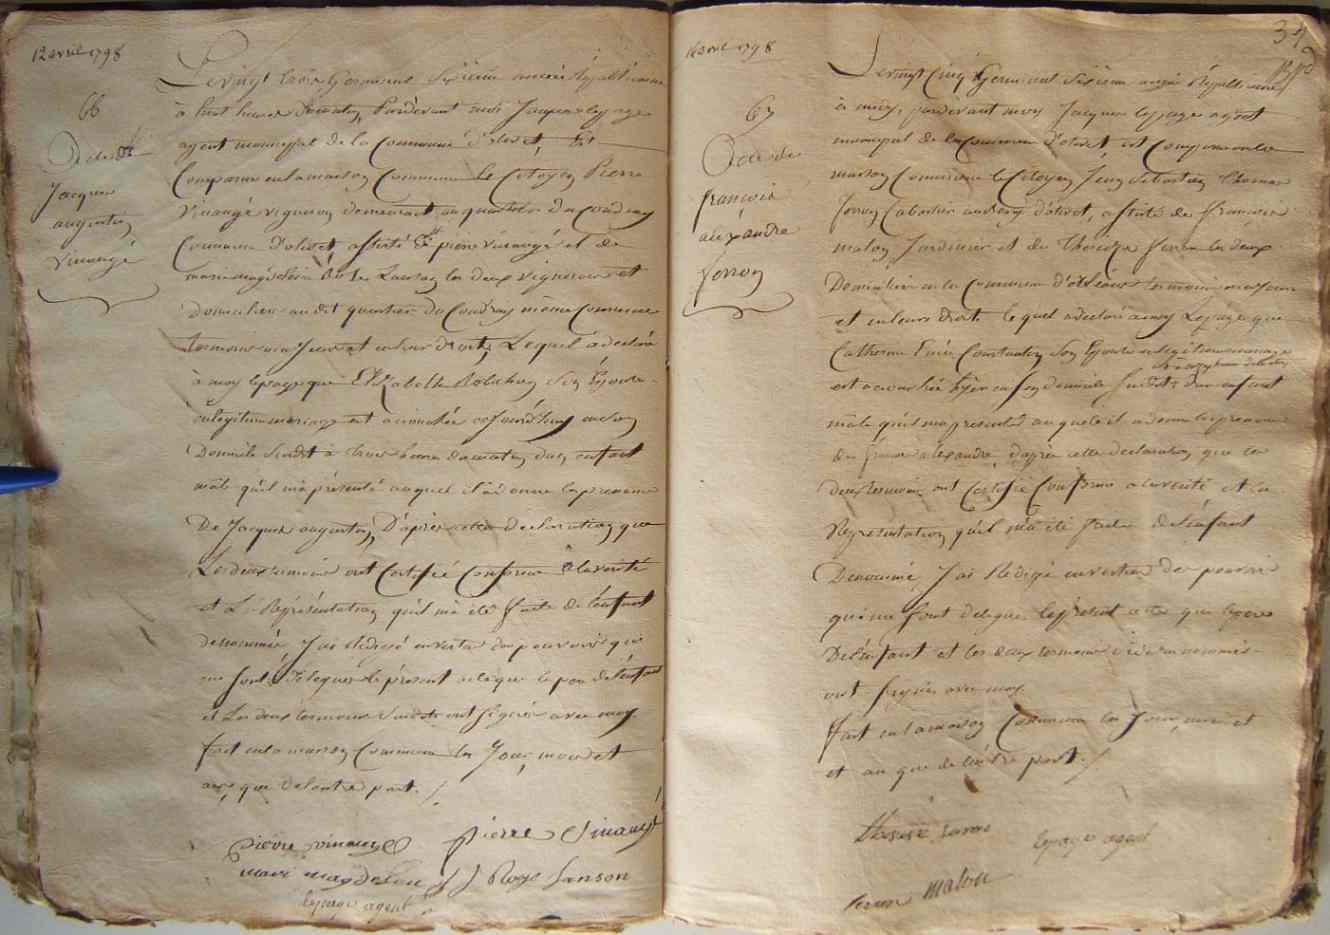 12 avril 1798
66
Jacques
augustin
vinangé
Le vingt trois Germinal Sixieme année Républicaine
à huit heures du matin, Pardevant moi Jacques lepage
agent municipal de la Commune d'olivet, Est
Comparu en la maison Commune le Citoyen Pierre
Vinangé vigneron demeurant au quartier du Coudray
Commune d'olivet assisté de pierre vinangé et de
marie magdeleine Lanson les deux vignerons et
Domiciliés au dit quartier du Coudray même Commune
temoins majeurs et en leurs droits, Lequel a déclaré
à moy lepage que Elizabeth Robichon Son Epouse
en légitime mariage est accouchée aujourd'huy en son
Domicile Susdit à trois heures du matin d'un enfant
mâle qu'il m'a présenté auquel il a donné les prenoms
De Jacques augustin, D'après cette declaration que
Les deux temoins ont Certifié Conforme à la vérité
et La Représentation qu'il m'a été faite de l'enfant
denommé, J'ai Rédigé en vertu des pouvoirs qui
me sont délégués le présent acte que le pere de l'enfant
et Les deux temoins Susdits ont signé avec moy
fait en la maison Commune les Jour, mois et
an, que de l'autre part ./.
pierre vinangé pierre Vinangé
marie magdeleine Lanson
lepage agent
14 avril 1798
34
67
françois
alexandre
ferron
Le vingt Cinq Germinal Sixieme année Républicaine
à midy, pardevant moy Jacques lepage agent
municipal de la Commune d'olivet, est Comparu en la
maison Commune le Citoyen Jean Sebastien Thomas
ferron Cabaretier au bourg d'olivet, assisté de François
malon Jardinier et de Therese ferron les deux
Domiciliés en la Commune d'orléans temoins majeurs
et en leurs droits lequel a déclaré à moy Lepage que
Catherine Constantin Son Epouse en légitime mariage
est accouchée hier en son domicile Susdit d'un enfant
mâle qu'il m'a presenté auquel il a donné les prenoms
de françois alexandre, d'après cette declaration que les
deux temoins ont Certifié Conforme à la verité et la
Représentation qu'il m'a été faite de l'enfant
Denommé, J'ai Rédigé en vertu des pouvoirs
qui me sont délegués le présent acte que le pere
De l'enfant et les deux temoins ci dessus nommés
ont signés avec moy
fait en la maison Commune les Jour, mois et
et an que de l'autre part ./.
therese ferron
lepage agent
ferron malon